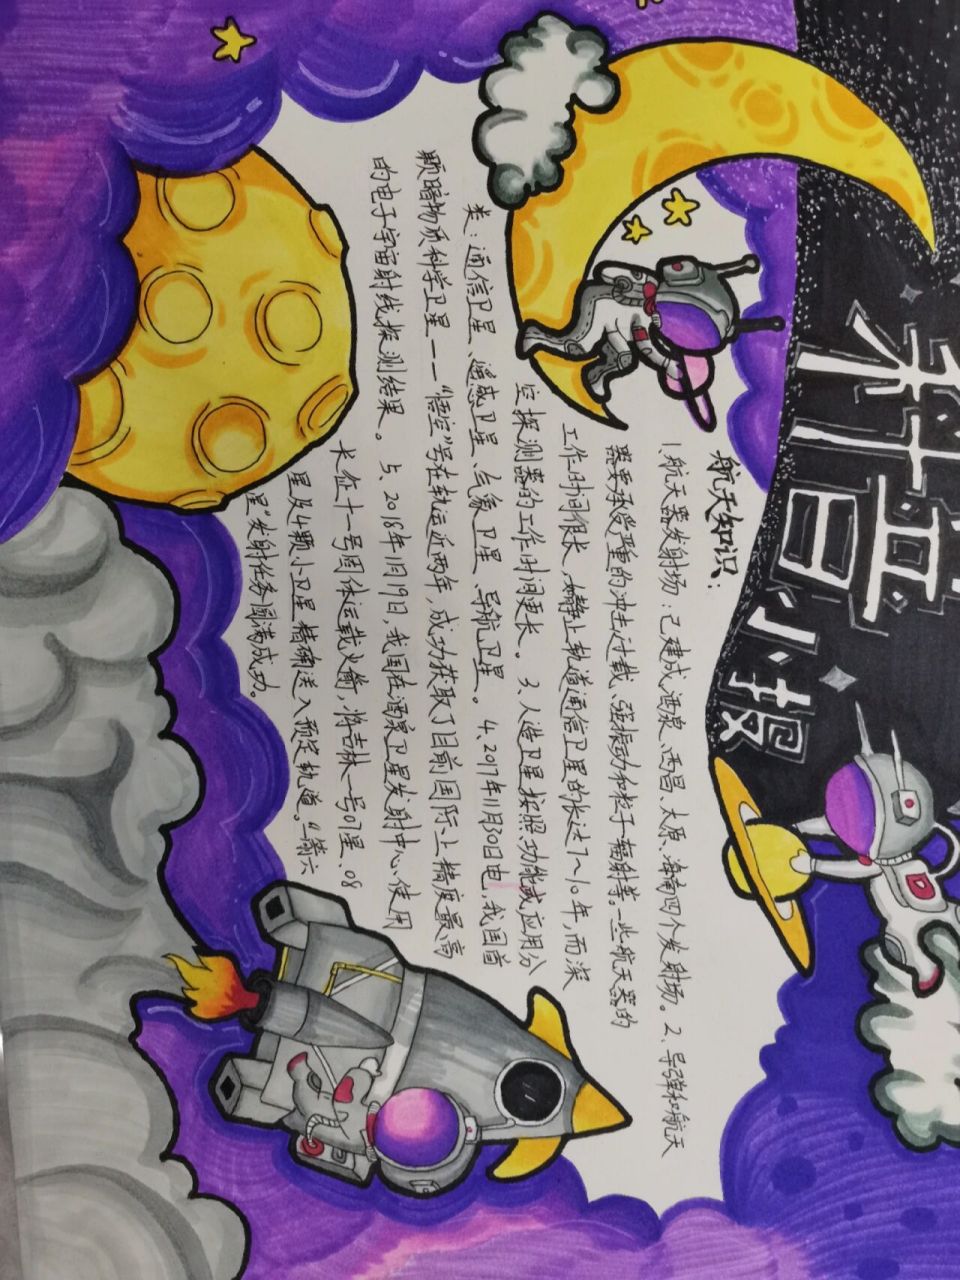 科普
小报
航天知识:
1.航天器发射场:已建成酒泉、西昌、太原、海南四个发射场。2、导弹和航天
器要承受严重的冲击过载、强振动和粒子辐射等。一些航天器的
工作时间很长,如静止轨道通信卫星的长达7~10年,而深
空探测器的工作时间更长。3、人造卫星按照功能或应用分
类:通信卫星、遥感卫星、气象卫星、导航卫星、。4.2017年11月30日电,我国首
颗暗物质科学卫星——"悟空"号在轨运近两年,成功获取了目前国际上精度最高
的电子宇宙射线探测结果。5、2018年1月19日,我国在酒泉卫星发射中心使用
长征十一号固体运载火箭,将吉林一号07星、08
星及4颗小卫星精确送入预定轨道。"一箭六
星"发射任务圆满成功。